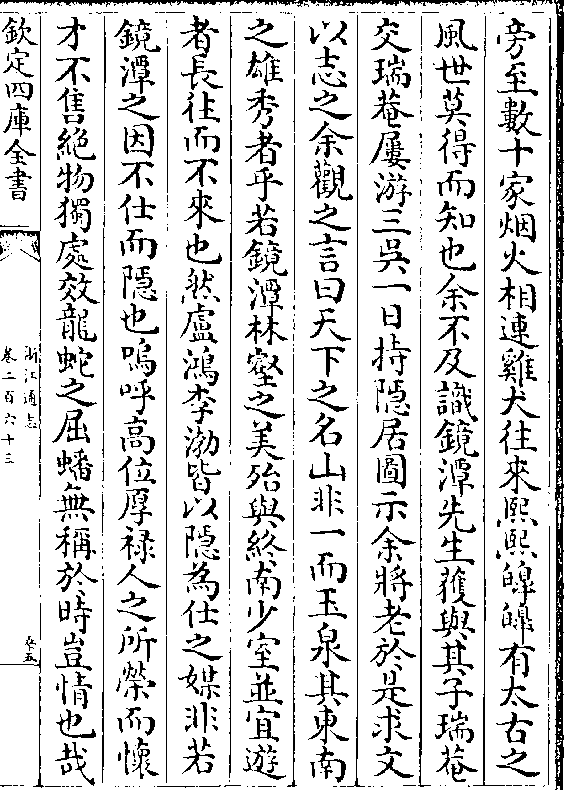 旁至數十家烟火相連雞犬往來熙熙皥皥有太古之
風世莫得而知也余不及識鏡潭先生獲與其子瑞菴
交瑞菴屢游三吳一日持隱居圖示余將老於是求文
以志之余觀之言曰天下之名山非一而玉泉其東南
之雄秀者乎若鏡潭林壑之美殆與終南少室並宜遊
者長往而不來也然盧鴻李渤皆以隱為仕之媒非若
鏡潭之因不仕而隱也嗚呼高位厚祿人之所榮而懷
才不售絕物獨處效龍蛇之屈蟠無稱於時豈情也哉
欽定四庫全書
浙江通志
卷二百六十三